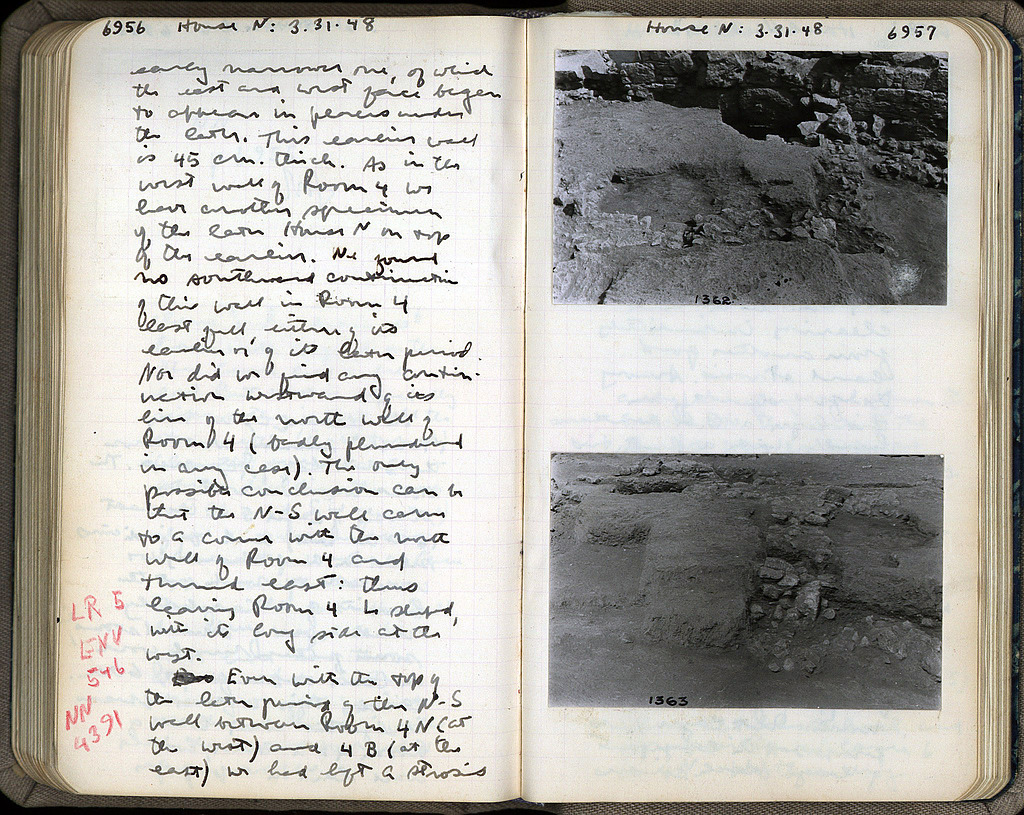 6956 House N: 3.31.48
early narrower one, of which
the east and west face began
to appear in places under
the later. This earlier wall
is 45 cm. thick. As in the
west wall of Room 4 we
have another specimen
of the later House N on top
of the earlier. We found
no southward continuation
of this wall in Room 4
East full either of its
earlier or of its later period.
Nor did we find any contin-
uation westward of its
line of the north wall of
Room 4 (badly plundered
in any case). The only
possible conclusion can be
that the N-S wall came
to a corner with the north
wall of Room 4 and
turned east: thus
leaving Room 4 L shaped,
with its long side at the
west.
Even with the top of
the later period of the N-S
wall between Room 4N (at
the west) and 4B (at the
east) we had left a strosis
LR 5
ENV
546
NN
4391
House N: 3.31.48 6957
1362
1363